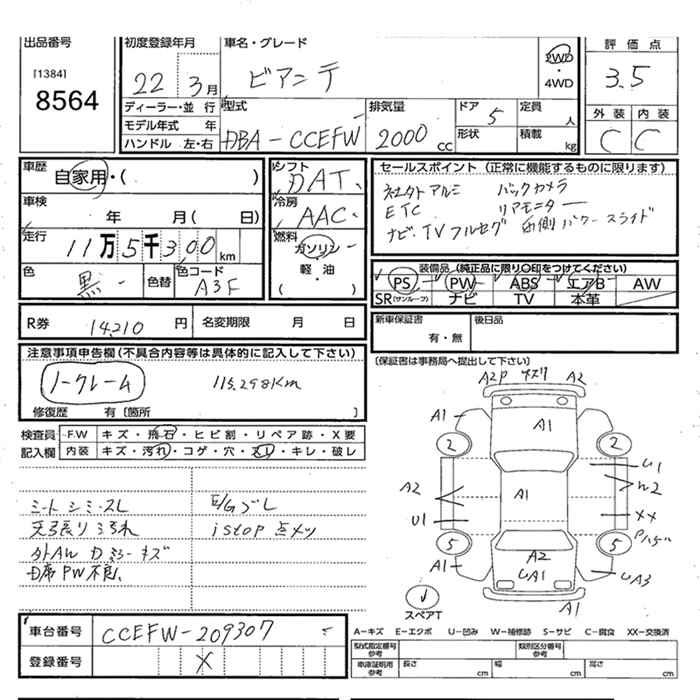 出品番号
[1384]
8564
初度登録年月
22 3月
車名・グレード
ビアンテ
2WD
・4WD
評価点
3.5
外装 内装
C C
ディーラー・並行
モデル年式 年
ハンドル 左・右
型式
DBA-CCEFW
排気量
2000 cc
ドア 5
形状
定員 人
積載 kg
車歴
自家用・( )
車検
年 月( 日)
走行
11万5千300km
色
黒
色替
色コード
A3F
シフト
DAT
冷房
AAC
燃料
ガソリン
軽・油
( )
セールスポイント (正常に機能するものに限ります)
社外アルミ バックカメラ
ETC リアモニター
ナビ.TVフルセグ 両側パワースライド
装備品 (純正品に限り○印をつけてください)
PS PW ABS エアB AW
SR(サンルーフ) ナビ TV 本革
R券 14,210円 名変期限 月 日
新車保証書
有・無
後日品
[保証書は事務局へ提出して下さい]
注意事項申告欄(不具合内容等は具体的に記入して下さい)
ノークレーム 115,298Km
修復歴 有 [箇所 ]
検査員記入欄
F.W キズ・飛石・ヒビ割・リペア跡・X要
内装 キズ・汚れ・コゲ・穴・スレ・キレ・破レ
シートシミ・スレ E/Gブレ
天張り汚れ istop点メツ
外AWガリキズ
D席PW不良
A2P キズリ A2
A1
A1
A1
2
2
U1
W2
A2
A1
U1
XX
5
5
Pハゲ
A1
A2
UA1
UA3
A1
スペアT
車台番号 CCEFW-209307
登録番号 X
A-キズ E-エクボ U-凹み W-補修跡 S-サビ C-腐食 XX-交換済
型式指定番号参考
類別区分番号参考
車庫証明用参考 長さ cm 幅 cm 高さ cm